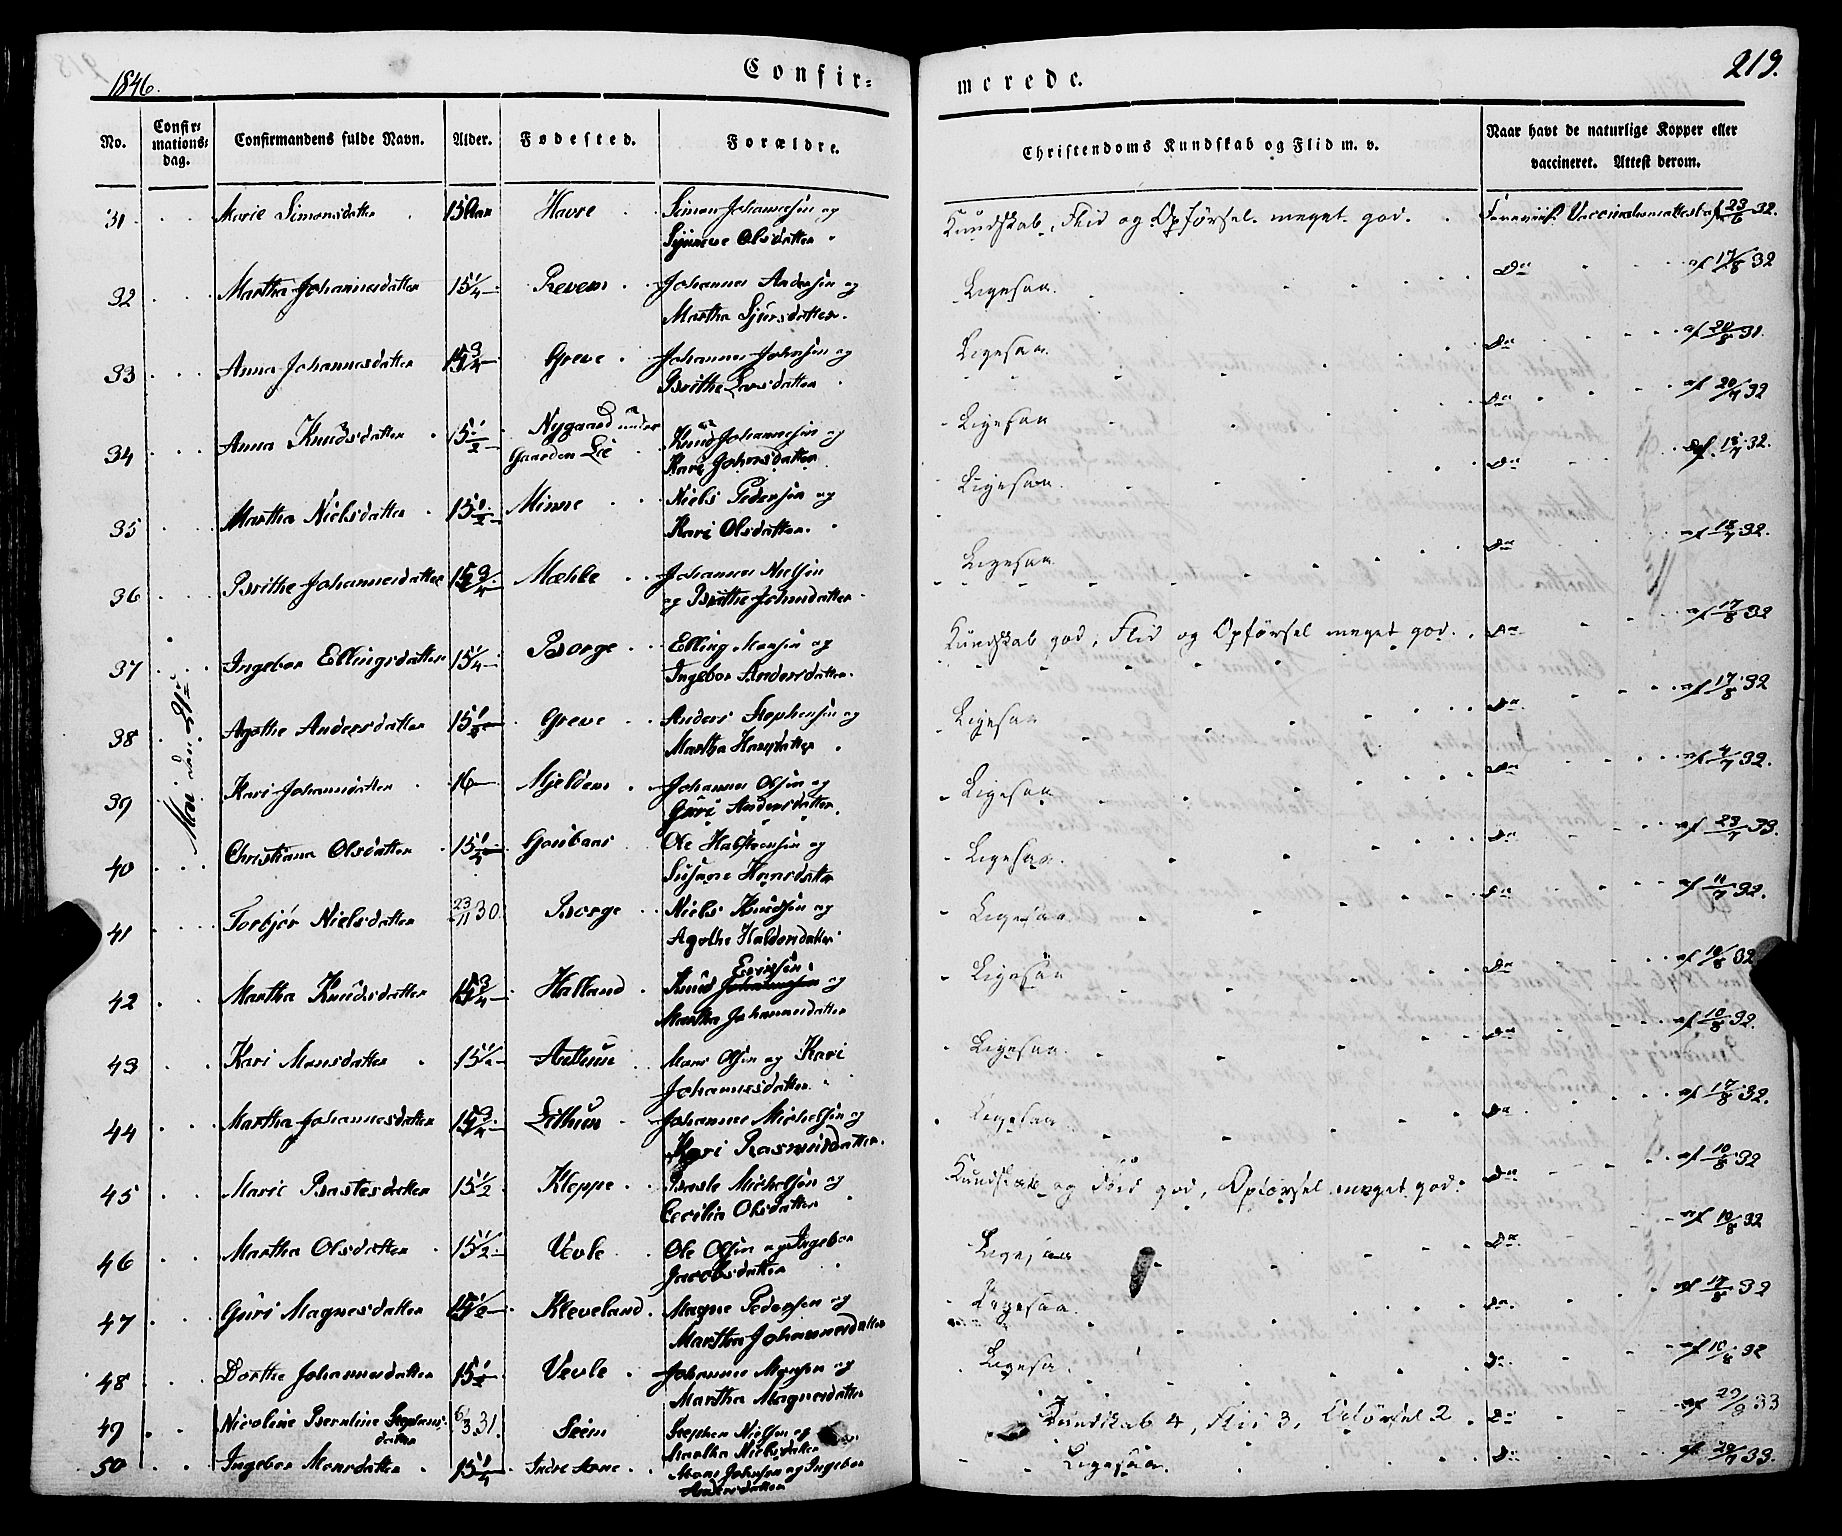 1846.
Confir=
merede.
219.
No.
Confir=
mations=
dag.
Confirmandens fulde Navn.
Alder.
Fødested.
Forældre.
Christendoms Kundskab og Flid m. v.
Naar havt de naturlige Kopper eller
vaccineret. Attest derom.
Mai den
31 Marie Simonsdatter 15 Aar Havre Simon Johannessen og
Synneve Olsdatter
Kundskab, Flid og Opførsel meget god. Vaccinationsattest af 23/6 32.
32 Martha Johannesdatter 15 1/4 Revem Johannes Andersen og
Martha Sjursdatter.
Ligesaa. Do af 17/8 32
33 Anna Johannesdatter 15 3/4 Greve Johannes Johnsen og
Brithe Larsdatter
Ligesaa. Do af 20/8 31.
34 Anna Knudsdatter 15 1/2 Nygaard under
Gaarden Lie
Knud Johannessen og
Kari Johnsdatter
Ligesaa Do af 20/7 32
35 Martha Nielsdatter 15 1/2 Minne Niels Pedersen og
Kari Olsdatter.
Ligesaa. Do af 18/7 32.
36 Brithe Johannesdatter 15 3/4 Mæhle Johannes Nielsen
og Brithe Johnsdatter
Ligesaa Do af 18/7 32.
37 Ingebor Ellingsdatter 15 1/4 Borge Elling Monsen og
Ingebor Andersdatter.
Kundskab god, Flid og Opførsel meget god. Do af 17/8 32
38 Agathe Andersdatter 15 1/2 Greve Anders Stephensen og
Martha Hansdatter
Ligesaa Do af 17/8 32
39 Kari Johannesdatter 16 Mjeldem Johannes Olsen og
Guri Andersdatter.
Ligesaa Do af 4/7 32.
40 Christiana Olsdatter 15 1/4 Ole Halsteensen og
Susane Hansdatter
Ligesaa. Do af 23/7 33.
41 Torbjør Nielsdatter 23/11 30. Borge Niels Knudsen og
Agathe Haldorsdatter
Ligesaa Do af 11/7 32.
42 Martha Knudsdatter 15 3/4 Halland Ericsen
Knud Johannessen og
Martha Johannesdatter
Ligesaa Do af 10/8 32
43 Kari Monsdatter 15 1/2 Mons Olsen og Kari
Johannesdatter
Ligesaa. Do af 10/8 32.
44 Martha Johannesdatter 15 3/4 Lethun Johannes Michelsen og
Kari Rasmusdatter.
Ligesaa Do af 17/8 32.
45 Marie Bastesdatter 15 1/2 Kleppe Baste Michelsen og
Cecilia Olsdatter
Kundskab og Flid god, Opførsel meget god. Do af 10/8 32
46 Martha Olsdatter 15 1/2 Vevle Ole Olsen og Ingebor
Jacobsdatter
Ligesaa Do af 10/8 32
47 Guri Magnesdatter 15 1/2 Kleveland Magne Pedersen og
Martha Johannesdatter
Ligesaa. Do af 17/8 32
48 Dorthe Johannesdatter 15 1/2 Vevle Johannes Monsen og
Martha Magnesdatter
Ligesa Do af 10/8 32
49 Nicoline Berntine Stephens-
datter
6/3 31. Seim Stephen Nielsen og
Martha Nielsdatter
Kundskab 4, Flid 3, Opførsel 2 Do af 29/9 33
50 Ingebor Monsdatter 15 1/4 Indre Arne Mons Johnsen og Ingebor
Andersdatter
Ligesaa. Do af 30/7 33.